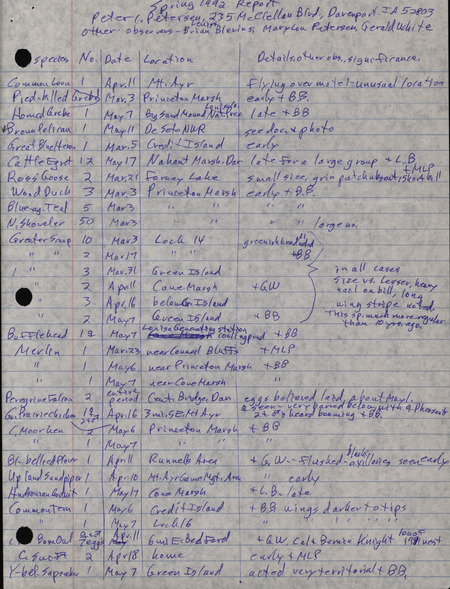 Spring 1992 Report
Peter C. Petersen, 235 McClellan Blvd, Davenport, IA 52803
other observers - Brian Blevins, Marylou Petersen, Gerald White
species No. Date Location Details, other obs, significance.
Common Loon 1 Apr. 11 Mt. Ayr flying over motel - unusual location
Pied-billed Grebe 1 Mar. 3 Princeton Marsh early + BB
Horned Grebe 1 May 7 Big Sand Mound Nat. Pres. Louisa Co late + BB
*Brown Pelican 1 May 11 DeSoto NWR see doc + photo
Great Blue Heron 1 Mar. 5 Credit Island early
Cattle Egret 12 May 17 Nahant Marsh, Dav late for a large group + L.B.
+ MLP
Ross Goose 2 Mar. 21 Forney Lake small size, grin patch absent, short bill
Wood Duck 3 Mar. 3 Princeton Marsh early + BB
Blue-wg. Teal 5 Mar 3 " "
N. Shoveler 50 Mar 3 " " large no.
Greater Scaup 10 Mar 3 Lock 14 greenish head
" " 2 Mar 17 " + BB
1 " 3 Mar. 31 Green Island in all cases
" 2 April 11 Cone Marsh + GW size vs. Lesser, heavy
" 3 Apr. 16 below Gr Island nail on bill, long
" 2 May 7 Green Island + BB wing stripe noted.
This sp. much more regular
than 10 yrs. ago
Bufflehead 12 May 7 Louisa Generating station cooling pond + BB
Merlin 1 Mar. 23 near Council Bluffs + MLP
" 1 May 6 near Princeton Marsh + BB
" 1 May 7 near Cone Marsh
Peregrine Falcon 2 entire period Cent. Bridge, Dav eggs believed laid about May 1,
Gr. Prairie chicken Apr. 16 3 mi S E Mt Ayr
C. Moorhen 2 May 6 Princeton Marsh + BB
" 1 May 7 " "
Bl-bellied Plover 1 April 11 Runnells Area + G.W. - flushed - black axillaries seen early
Upland Sandpiper 1 Apr. 10 Mt. Ayr Game Mgt. Area " early
Hudsonian Godwit 1 May 17 Cone Marsh + L.B. - late
Common Tern 1 May 6 Credit Island + BB wings darker to tips
" 1 May 7 Lock 16 " " " "
Barn Owl April 11 6 mi E Bedford + G.W. Bernice Knight
2 Apr 18 home early + MLP
Y-bel. Sapsucker 1 May 7 Green Island acted very territorial + BB